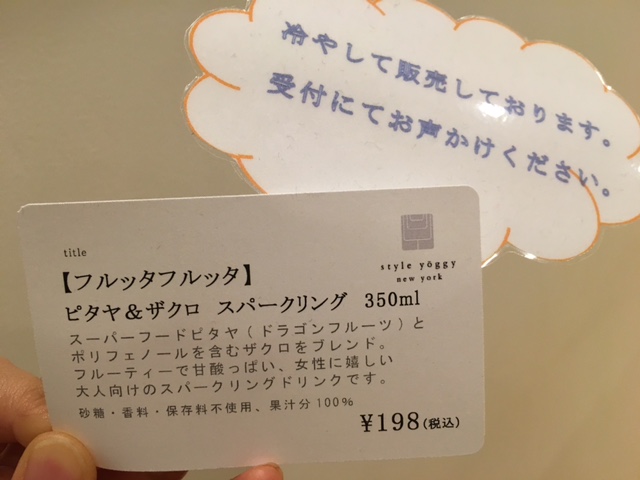 冷やして販売しております。
受付にてお声かけください。
title
style yöggy
new york
【フルッタフルッタ】
ピタヤ&ザクロ スパークリング 350ml
スーパーフードピタヤ(ドラゴンフルーツ)と
ポリフェノールを含むザクロをブレンド。
フルーティーで甘酸っぱい、女性に嬉しい
大人向けのスパークリングドリンクです。
砂糖・香料・保存料不使用、果汁分100%
¥198(税込)